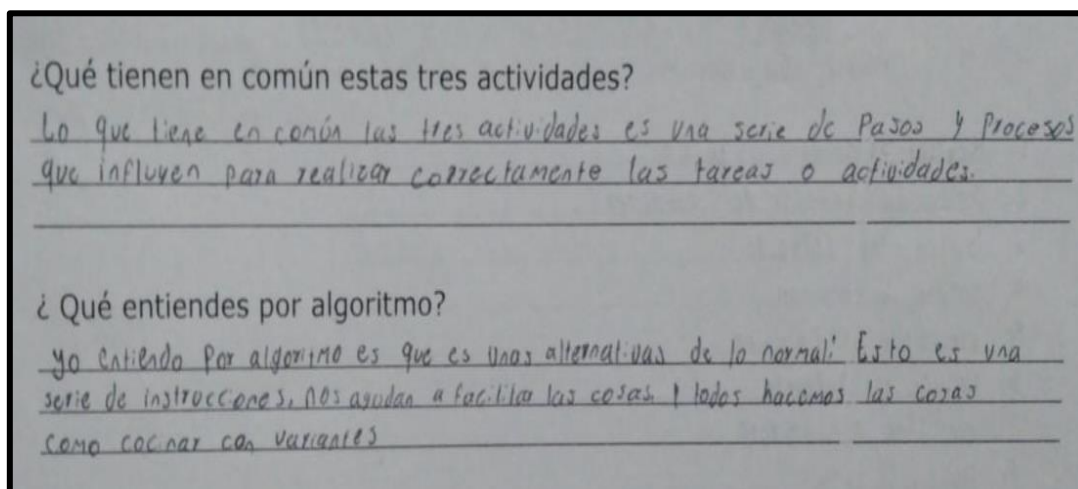 ¿Qué tienen en común estas tres actividades?
Lo que tiene en común las tres actividades es una serie de Pasos y Procesos
que influyen para realizar correctamente las tareas o actividades.
¿ Qué entiendes por algoritmo?
yo entiendo por algoritmo es que es unas alternativas de lo normal: Esto es una
serie de instrucciones, nos ayudan a facilitar las cosas y todos hacemos las cosas
como cocinar con variantes